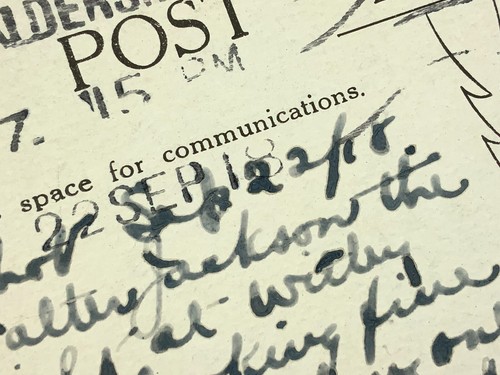 ALDERSH
POST
7. 15 PM
space for communications.
22 SEP 18
Sep 22/18.
alter Jackson the
at Witley
king fine
on